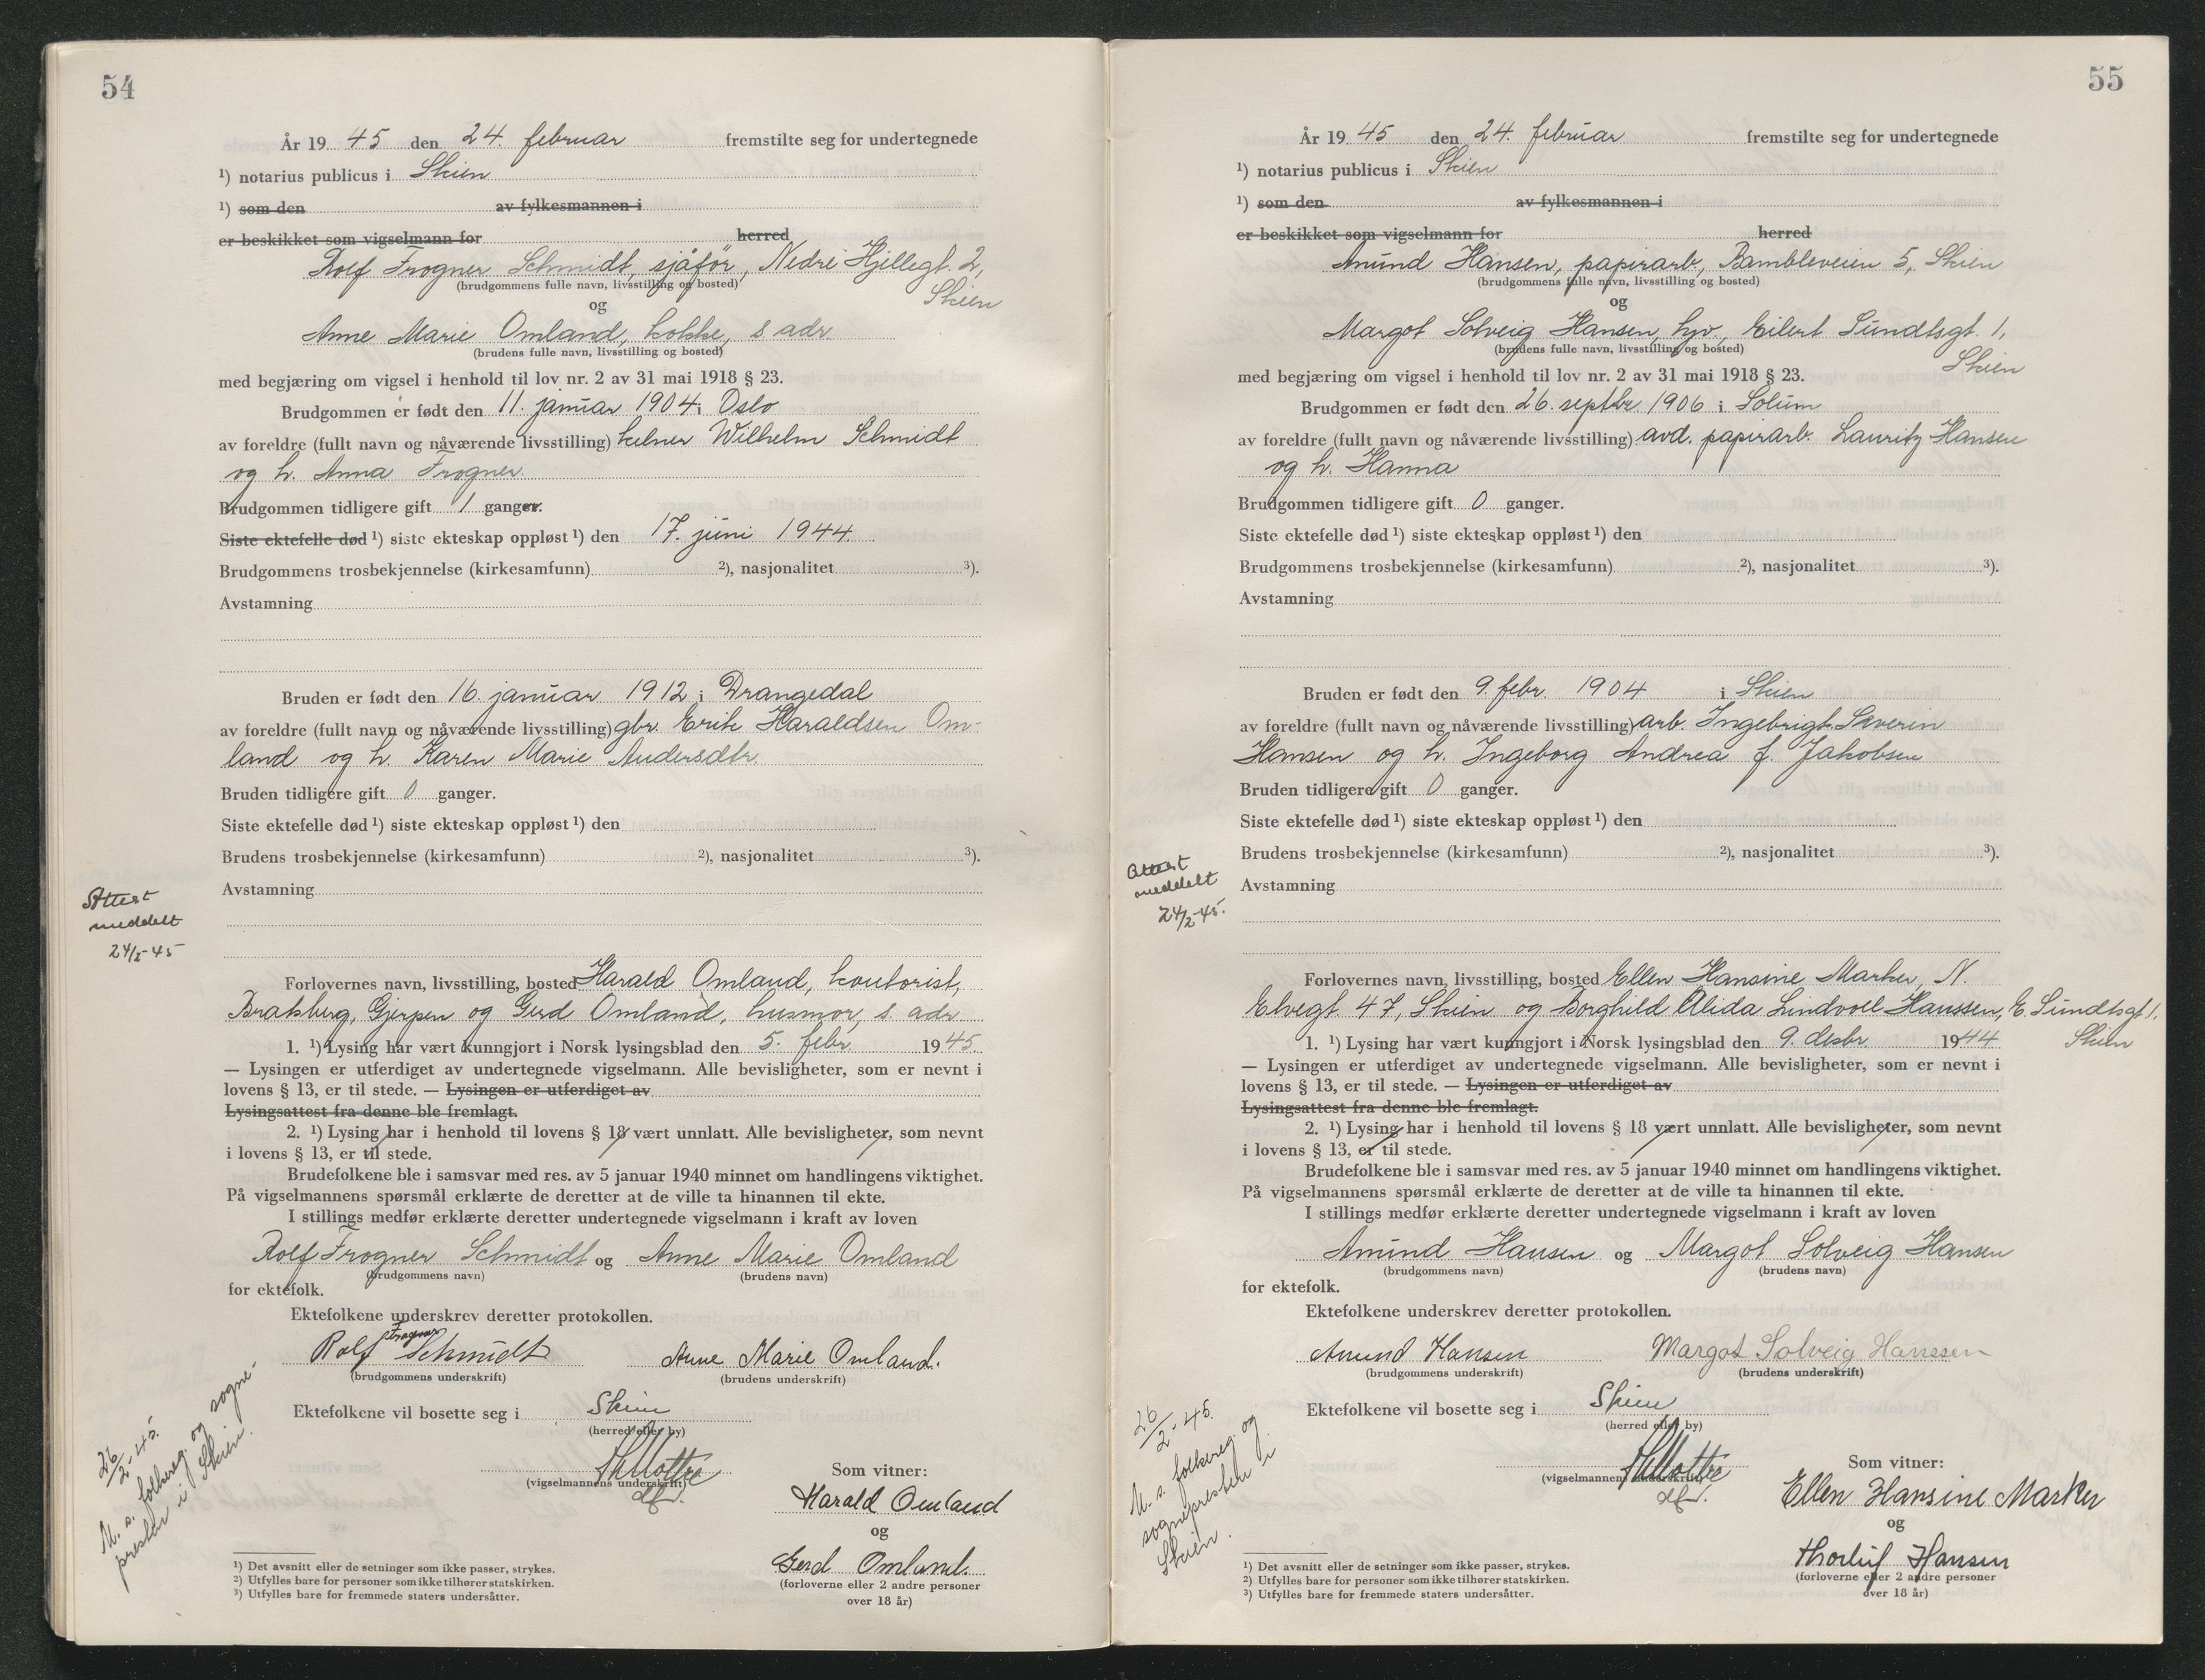 54
År 19 45 den 24. februar fremstilte seg for undertegnede
¹) notarius publicus i Skien
¹) som den av fylkesmannen i
er beskikket som vigselmann for herred
Rolf Frogner Schmidt, sjåfør, Nedre Hjellegt. 2,
(brudgommens fulle navn, livsstilling og bosted)
Skien
og
Anne Marie Omland, kokke, s adr.
(brudens fulle navn, livsstilling og bosted)
med begjæring om vigsel i henhold til lov nr. 2 av 31 mai 1918 § 23.
Brudgommen er født den 11. januar 1904 i Oslo
av foreldre (fullt navn og nåværende livsstilling) kelner Wilhelm Schmidt
og h. Anna Frogner.
Brudgommen tidligere gift 1 ganger.
Siste ektefelle død ¹) siste ekteskap oppløst ¹) den 17. juni 1944.
Brudgommens trosbekjennelse (kirkesamfunn) ²), nasjonalitet ³).
Avstamning
Bruden er født den 16. januar 1912 i Drangedal
av foreldre (fullt navn og nåværende livsstilling) gbr. Erik Haraldsen Om-
land og h. Karen Marie Andersdtr.
Bruden tidligere gift 0 ganger.
Siste ektefelle død ¹) siste ekteskap oppløst ¹) den
Brudens trosbekjennelse (kirkesamfunn) ²), nasjonalitet ³).
Avstamning
Attest
meddelt
24/2-45
Forlovernes navn, livsstilling, bosted Harald Omland, kontorist,
Bratsberg, Gjerpen og Gerd Omland, husmor, s. adr.
1. ¹) Lysing har vært kunngjort i Norsk lysingsblad den 5. febr. 1945.
— Lysingen er utferdiget av undertegnede vigselmann. Alle bevisligheter, som er nevnt i
lovens § 13, er til stede. — Lysingen er utferdiget av
Lysingsattest fra denne ble fremlagt.
2. ¹) Lysing har i henhold til lovens § 18 vært unnlatt. Alle bevisligheter, som nevnt
i lovens § 13, er til stede.
Brudefolkene ble i samsvar med res. av 5 januar 1940 minnet om handlingens viktighet.
På vigselmannens spørsmål erklærte de deretter at de ville ta hinannen til ekte.
I stillings medfør erklærte deretter undertegnede vigselmann i kraft av loven
Rolf Frogner Schmidt og Anne Marie Omland
(brudgommens navn) (brudens navn)
for ektefolk.
Ektefolkene underskrev deretter protokollen.
Rolf Frogner Schmidt Anne Marie Omland.
(brudgommens underskrift) (brudens underskrift)
Ektefolkene vil bosette seg i Skien
(herred eller by)
(vigselmannens underskrift)
Som vitner:
Harald Omland
og
Gerd Omland.
(forloverne eller 2 andre personer
over 18 år)
26/2-45.
M. s. folkereg. og sogne-
prester i Skien.
¹) Det avsnitt eller de setninger som ikke passer, strykes.
²) Utfylles bare for personer som ikke tilhører statskirken.
³) Utfylles bare for fremmede staters undersåtter.
55
År 19 45 den 24. februar fremstilte seg for undertegnede
¹) notarius publicus i Skien
¹) som den av fylkesmannen i
er beskikket som vigselmann for herred
Amund Hansen, papirarb, Bambleveien 5, Skien
(brudgommens fulle navn, livsstilling og bosted)
og
Margot Solveig Hansen, hjv., Eilert Sundtsgt. 1,
(brudens fulle navn, livsstilling og bosted)
Skien
med begjæring om vigsel i henhold til lov nr. 2 av 31 mai 1918 § 23.
Brudgommen er født den 26. septbr. 1906 i Solum
av foreldre (fullt navn og nåværende livsstilling) avd. papirarb. Lauritz Hansen
og h. Hanna
Brudgommen tidligere gift 0 ganger.
Siste ektefelle død ¹) siste ekteskap oppløst ¹) den
Brudgommens trosbekjennelse (kirkesamfunn) ²), nasjonalitet ³).
Avstamning
Bruden er født den 9. febr. 1904 i Skien
av foreldre (fullt navn og nåværende livsstilling) arb. Ingebrigt Severin
Hansen og h. Ingeborg Andrea f. Jakobsen
Bruden tidligere gift 0 ganger.
Siste ektefelle død ¹) siste ekteskap oppløst ¹) den
Brudens trosbekjennelse (kirkesamfunn) ²), nasjonalitet ³).
Avstamning
Attest
meddelt
24/2-45.
Forlovernes navn, livsstilling, bosted Ellen Hansine Marker, N.
Elvegt. 47, Skien og Borghild Alida Lindvoll Hanssen, E. Sundtsgt 1,
Skien
1. ¹) Lysing har vært kunngjort i Norsk lysingsblad den 9. desbr. 1944
— Lysingen er utferdiget av undertegnede vigselmann. Alle bevisligheter, som er nevnt i
lovens § 13, er til stede. — Lysingen er utferdiget av
Lysingsattest fra denne ble fremlagt.
2. ¹) Lysing har i henhold til lovens § 18 vært unnlatt. Alle bevisligheter, som nevnt
i lovens § 13, er til stede.
Brudefolkene ble i samsvar med res. av 5 januar 1940 minnet om handlingens viktighet.
På vigselmannens spørsmål erklærte de deretter at de ville ta hinannen til ekte.
I stillings medfør erklærte deretter undertegnede vigselmann i kraft av loven
Amund Hansen og Margot Solveig Hansen
(brudgommens navn) (brudens navn)
for ektefolk.
Ektefolkene underskrev deretter protokollen.
Amund Hansen Margot Solveig Hanssen
(brudgommens underskrift) (brudens underskrift)
Ektefolkene vil bosette seg i Skien
(herred eller by)
(vigselmannens underskrift)
Som vitner:
Ellen Hansine Marker
og
Thorleif Hansen
(forloverne eller 2 andre personer
over 18 år)
26/2-45.
M. s. folkereg. og
sogneprester i
Skien.
¹) Det avsnitt eller de setninger som ikke passer, strykes.
²) Utfylles bare for personer som ikke tilhører statskirken.
³) Utfylles bare for fremmede staters undersåtter.